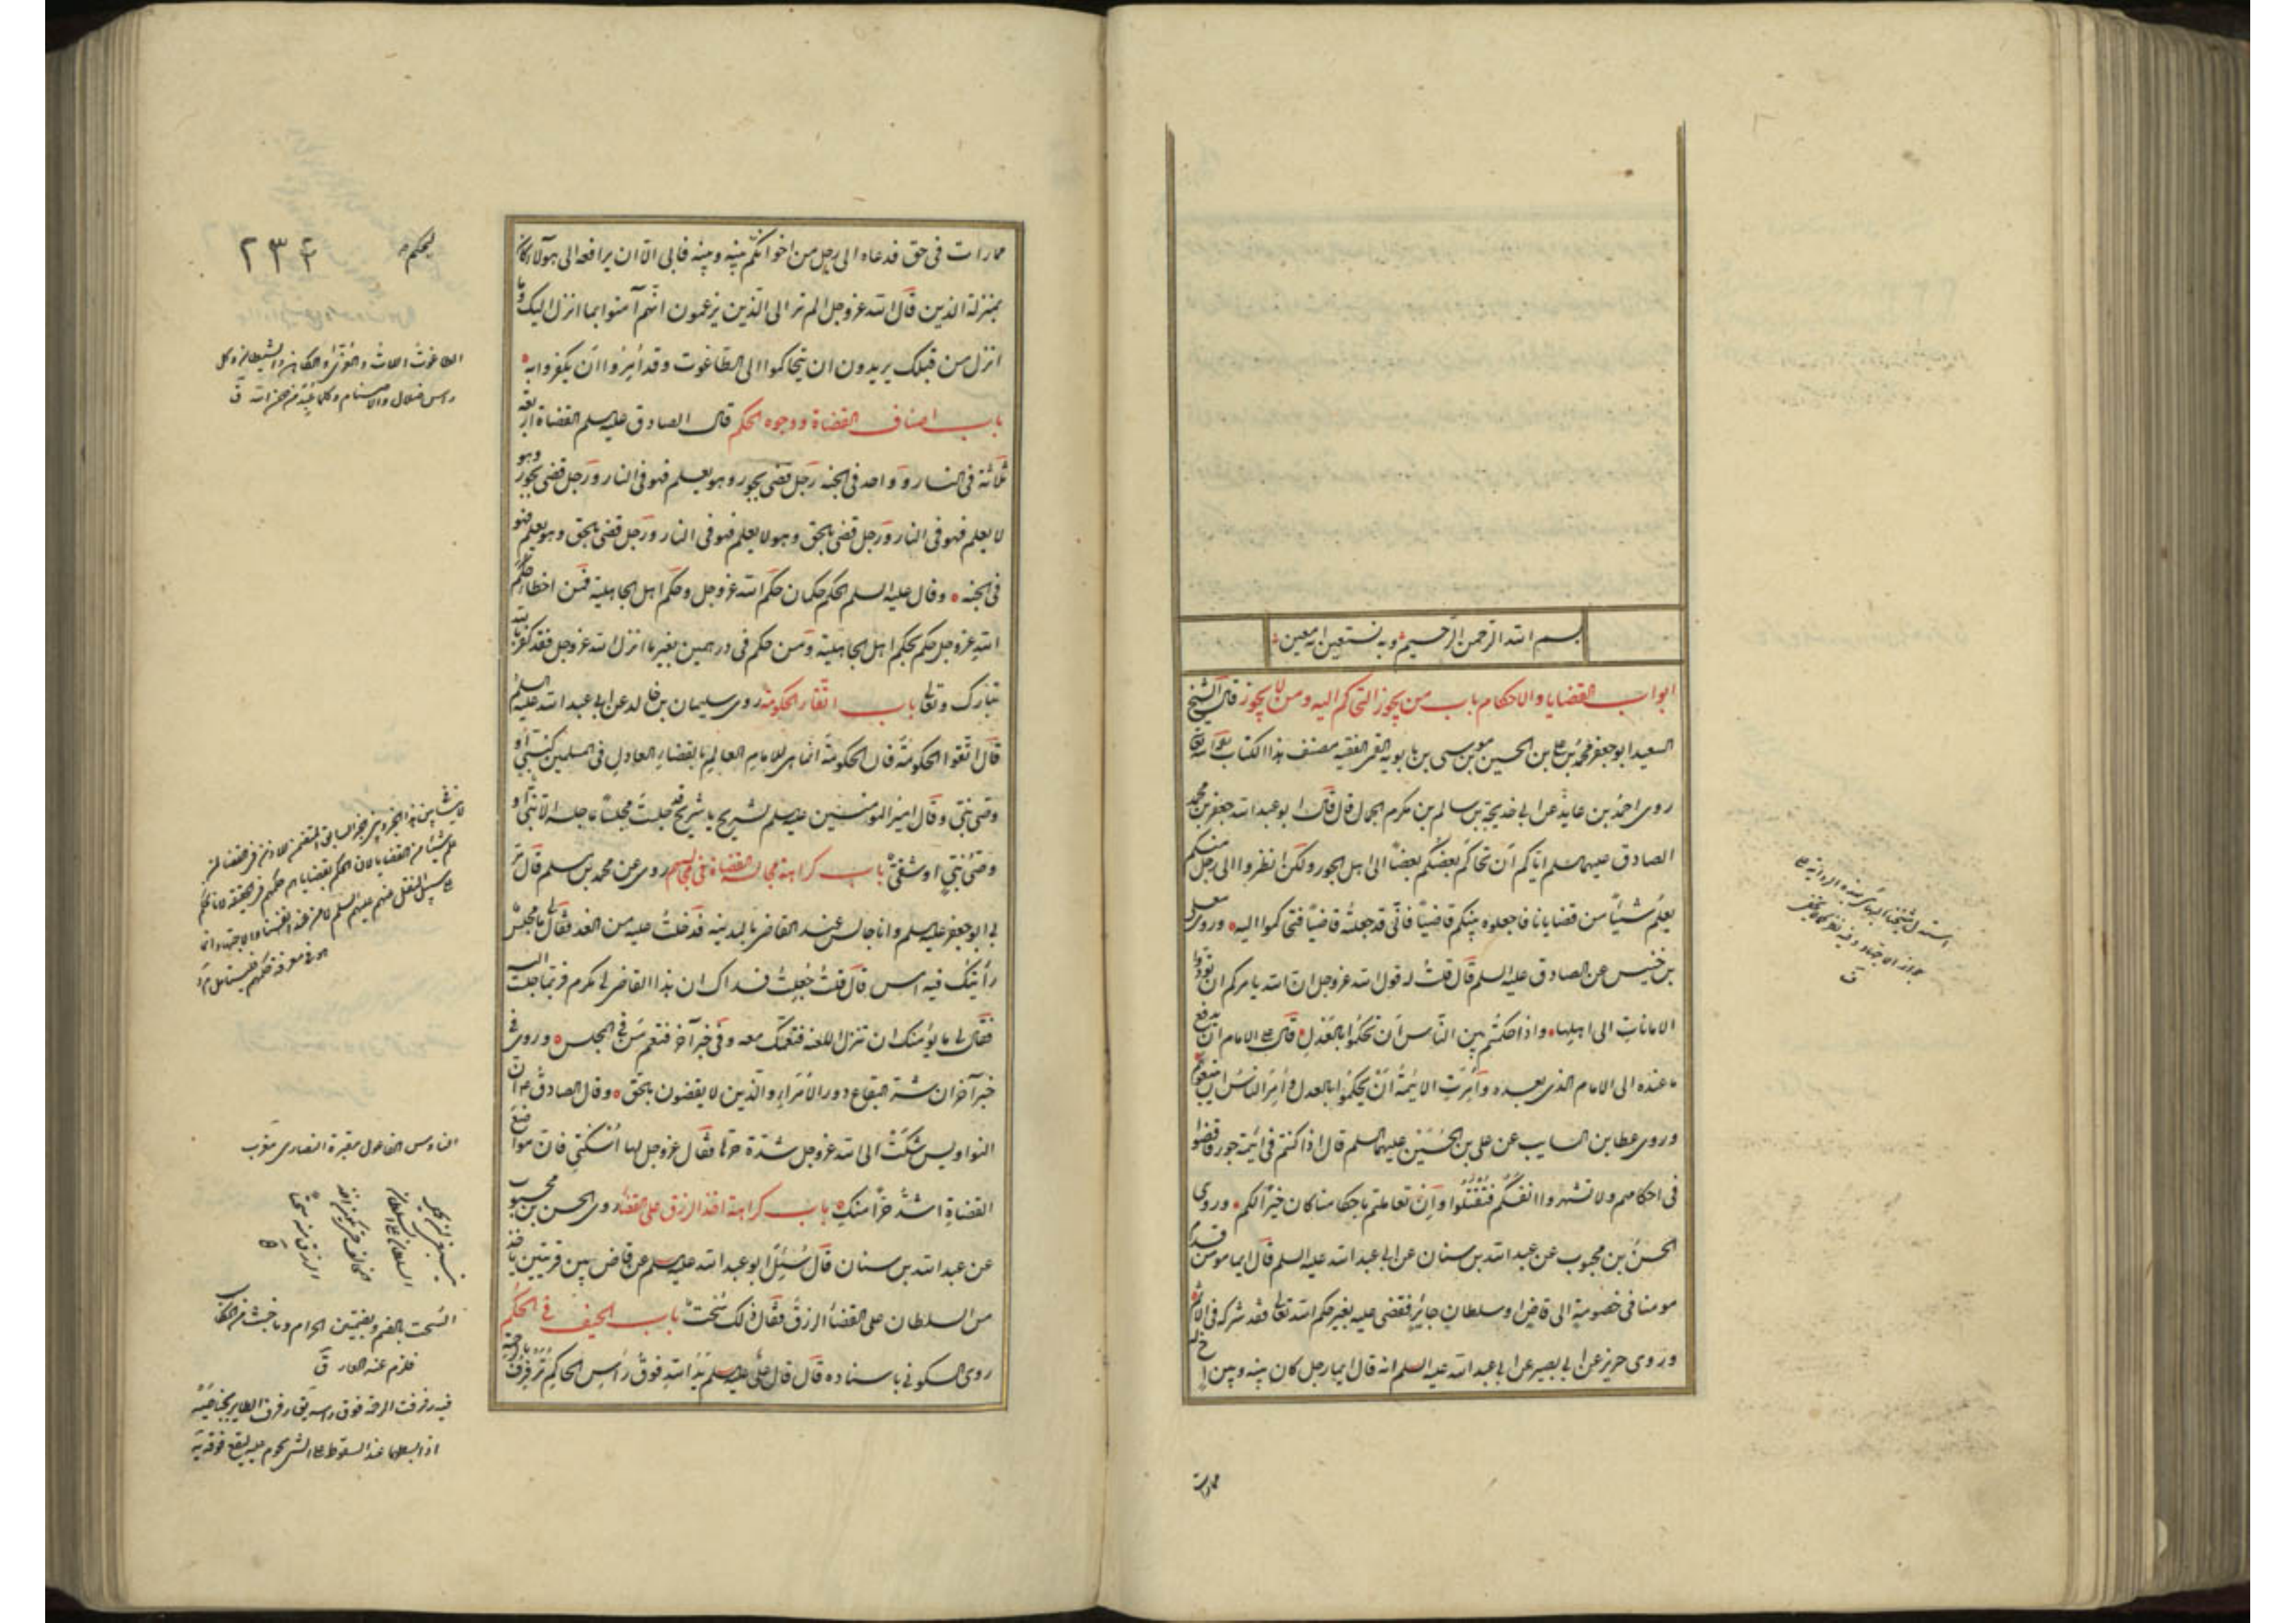 بسم الله الرحمن الرحيم وبه نستعين انه معين
ابواب القضايا والاحكام باب من يجوز التحاكم اليه ومن لا يجوز قال الشيخ
السعيد ابو جعفر محمد بن علي بن الحسين بن موسى بن بابويه القمي الفقيه مصنف هذا الكتاب
روى احمد بن عايذ عن ابي خديجة سالم بن مكرم الجمال قال قال ابو عبد الله جعفر بن محمد
الصادق عليهما السلم اياكم ان تحاكم بعضكم بعضا الى اهل الجور ولكن انظروا الى رجل منكم
يعلم شيئا من قضايانا فاجعلوه بينكم قاضيا فاني قد جعلته قاضيا فتحاكموا اليه وروى معلى
بن خنيس عن الصادق عليه السلم قال قلت له قول الله عز وجل ان الله يامركم ان تؤدوا
الامانات الى اهلها واذا حكمتم بين الناس ان تحكموا بالعدل قال على الامام ان يدفع
ما عنده الى الامام الذي بعده وامرت الائمة ان يحكموا بالعدل وامر الناس ان يتبعوهم
وروى عطا بن السايب عن علي بن الحسين عليهما السلم قال اذا كنتم في ائمة جور فاقضوا
في احكامهم ولا تشهروا انفسكم فتقتلوا وان تعاملتم باحكامنا كان خيرا لكم وروى
الحسن بن محبوب عن عبد الله بن سنان عن ابي عبد الله عليه السلم قال ايما مومن قدم
مومنا في خصومة الى قاض او سلطان جائر فقضى عليه بغير حكم الله تعالى فقد شركه في الاثم
وروى حريز عن ابي بصير عن ابي عبد الله عليه السلم انه قال ايما رجل كان بينه وبين اخ له
مماراة
مماراة في حق فدعاه الى رجل من اخوانكم بينه وبينه فابى الا ان يرافعه الى هولاء كان
بمنزلة الذين قال الله عز وجل الم تر الى الذين يزعمون انهم آمنوا بما انزل اليك وما
انزل من قبلك يريدون ان يتحاكموا الى الطاغوت وقد امروا ان يكفروا به
باب اصناف القضاة ووجوه الحكم قال الصادق عليه السلم القضاة اربعة
ثلثة في النار وواحد في الجنة رجل قضى بجور وهو يعلم فهو في النار ورجل قضى بجور وهو
لا يعلم فهو في النار ورجل قضى بالحق وهو لا يعلم فهو في النار ورجل قضى بالحق وهو يعلم فهو
في الجنة وقال عليه السلم الحكم حكمان حكم الله عز وجل وحكم اهل الجاهلية فمن اخطا حكم
الله عز وجل حكم بحكم اهل الجاهلية ومن حكم في درهمين بغير ما انزل الله عز وجل فقد كفر بالله
تبارك وتعالى باب اتقاء الحكومة روى سليمان بن خالد عن ابي عبد الله عليه السلم
قال اتقوا الحكومة فان الحكومة انما هي للامام العالم بالقضاء العادل في المسلمين كنبي او
وصي نبي وقال امير المومنين عليه السلم لشريح يا شريح قد جلست مجلسا ما جلسه الا نبي او
وصي نبي او شقي باب كراهة مجالسة القضاة في مجالسهم روى عن محمد بن مسلم قال مر
بي ابو جعفر عليه السلم وانا جالس عند القاضي بالمدينة فدخلت عليه من الغد فقال لي ما مجلس
رأيتك فيه امس قال قلت جعلت فداك ان هذا القاضي لي مكرم فربما جلست اليه
فقال لي ما يؤمنك ان تنزل اللعنة فتعمك معه وفي خبر آخر فتعم من في المجلس وروى في
خبر آخر ان شر البقاع دور الامراء والذين لا يقضون بالحق وقال الصادق ع ان
النواويس شكت الى الله عز وجل شدة حرها فقال عز وجل لها اسكني فان مواضع
القضاة اشد حرا منك باب كراهة اخذ الرزق على القضاء روى الحسن بن محبوب
عن عبد الله بن سنان قال سئل ابو عبد الله عليه السلم عن قاض بين قريتين ياخذ
من السلطان على القضاء الرزق فقال ذلك سحت باب الحيف في الحكم
روى السكوني باسناده قال قال علي عليه السلم يد الله فوق رأس الحاكم ترفرف بالرحمة
ليحكم
٢٣٤
الطاغوت اللات والعزى والكاهن والشيطان وكل
راس ضلال والاصنام وكلما عبد من دون الله ق
الناوس الفاعول مقبرة النصارى معرب
السحت بالضم وبضمتين الحرام وما خبث من المكاسب
فلزم عنه العار ق